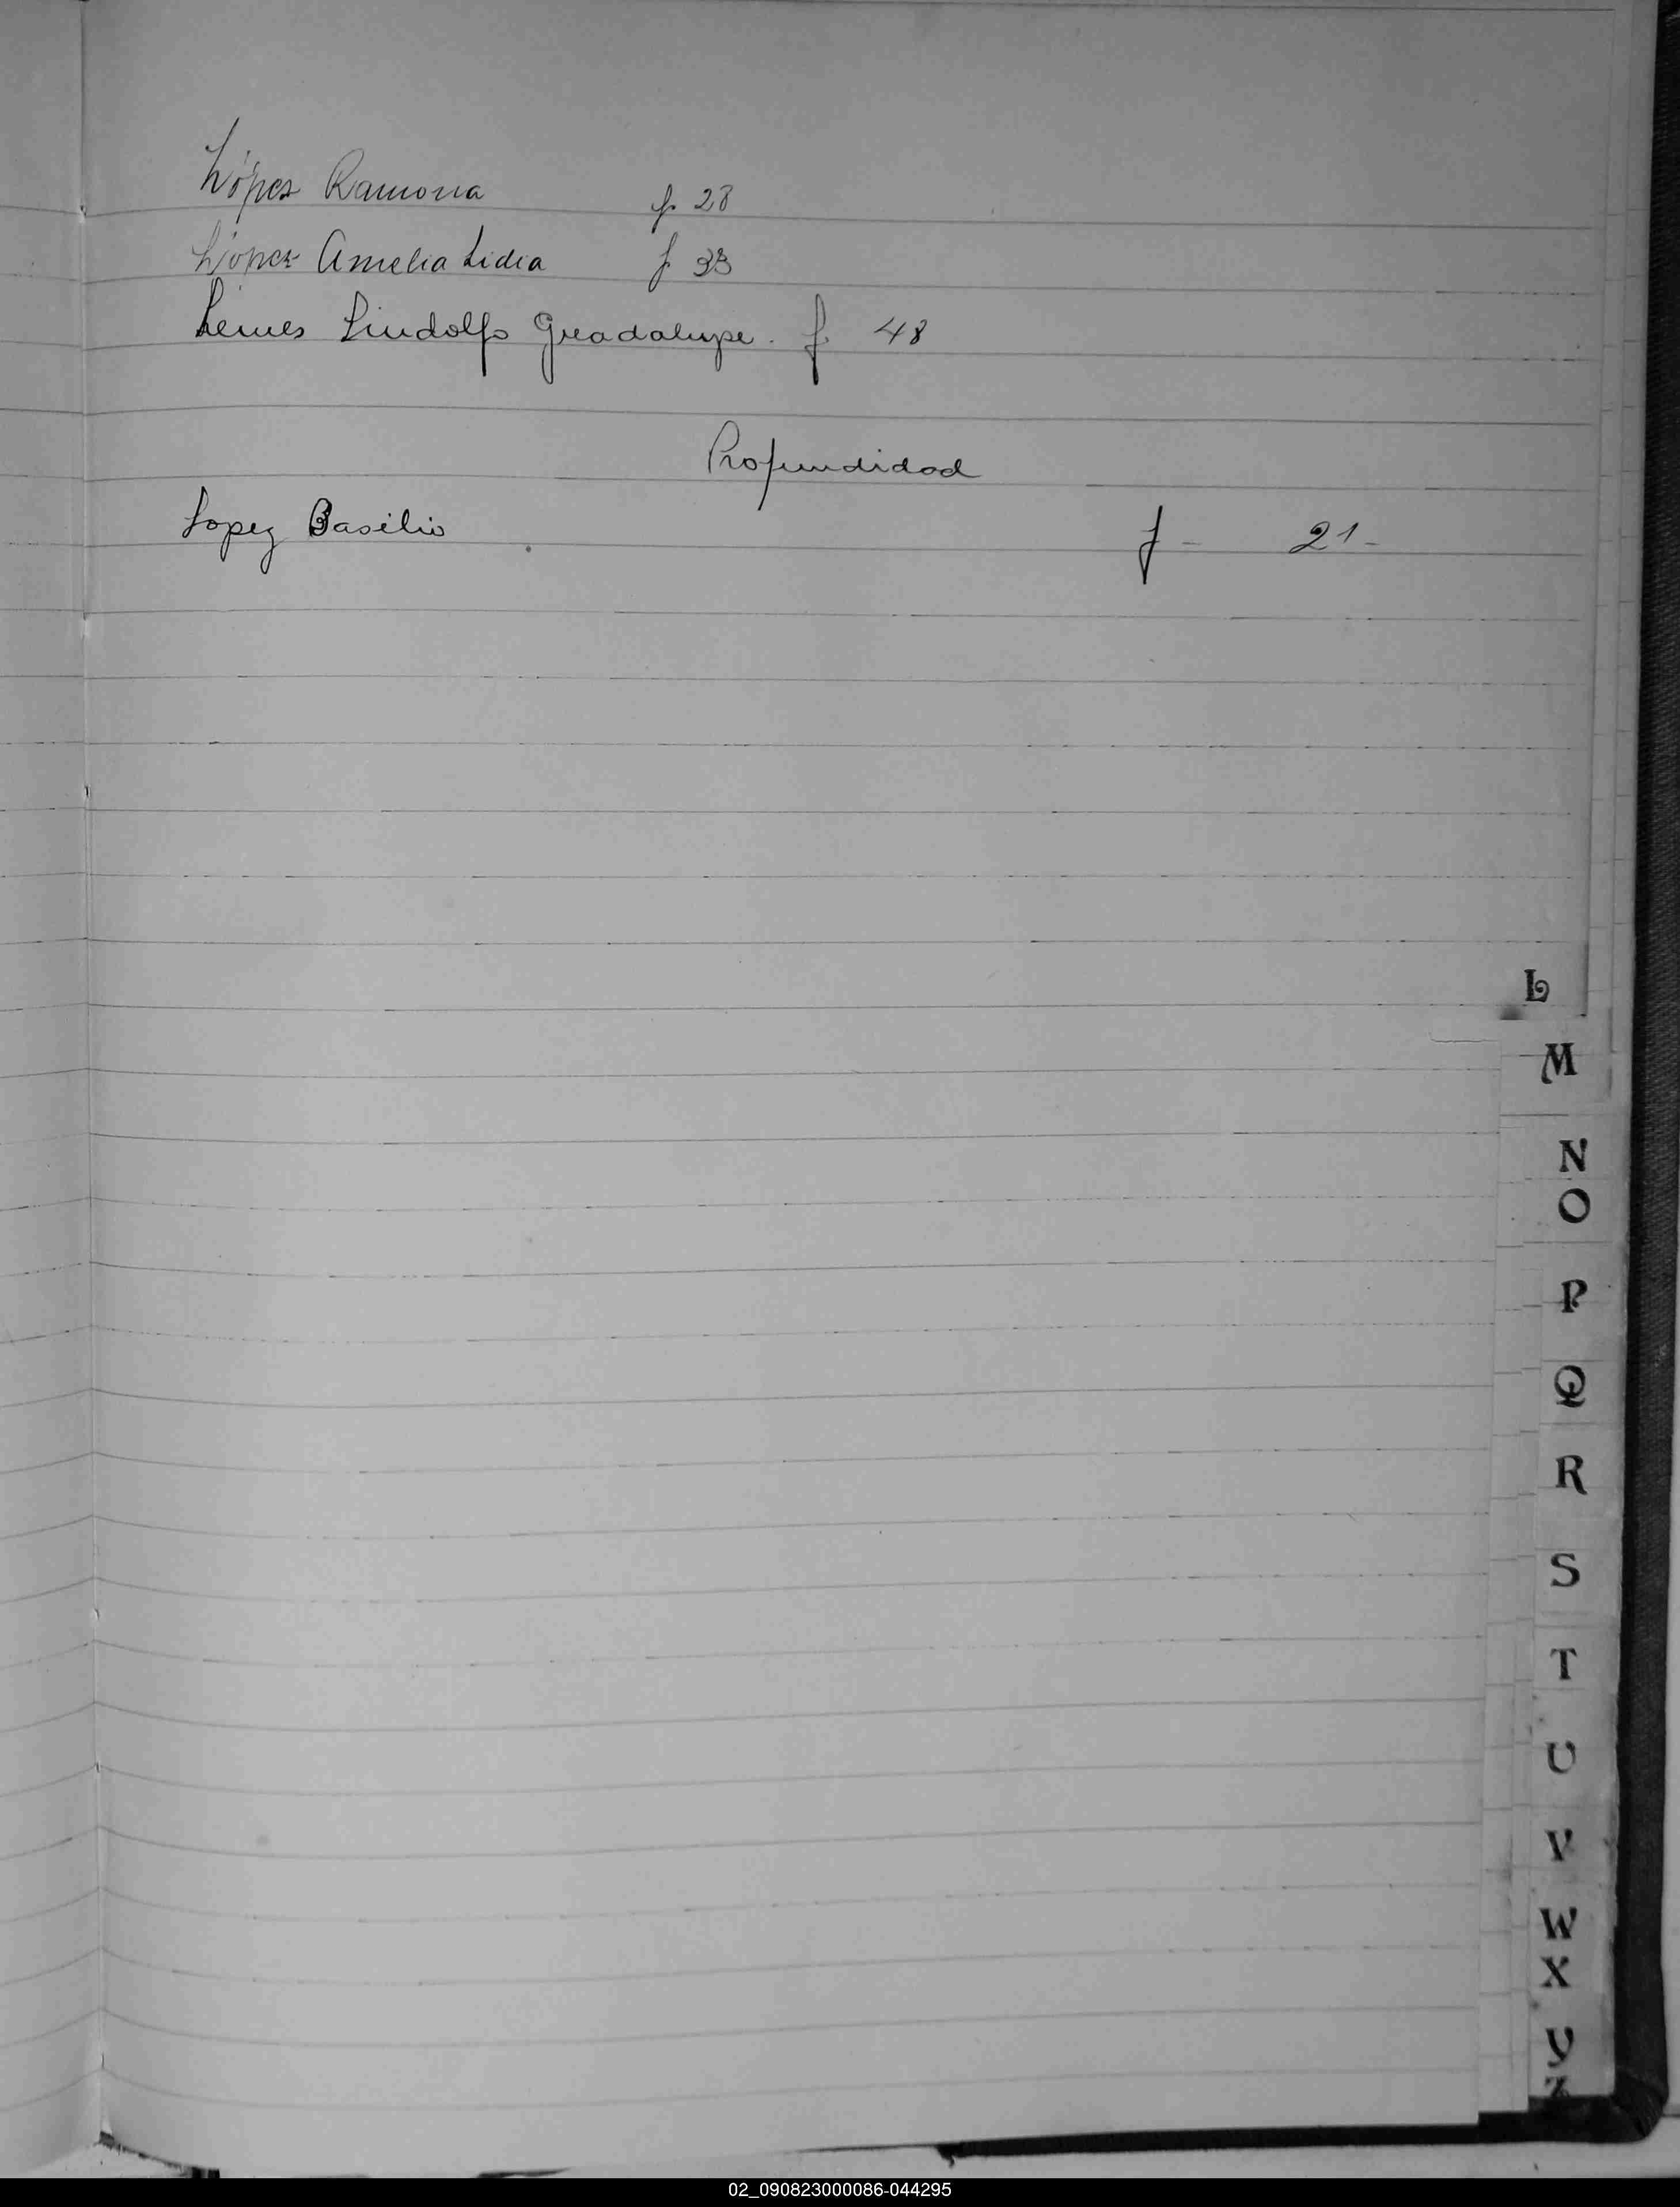 López Ramona f. 28
López Amelia Lidia f 33
Lemes Lindolfo Guadalupe. f. 48
Profundidad
Lopez Basilio f - 21 -
L
M
N
O
P
Q
R
S
T
U
V
W
X
Y
Z
02_090823000086-044295